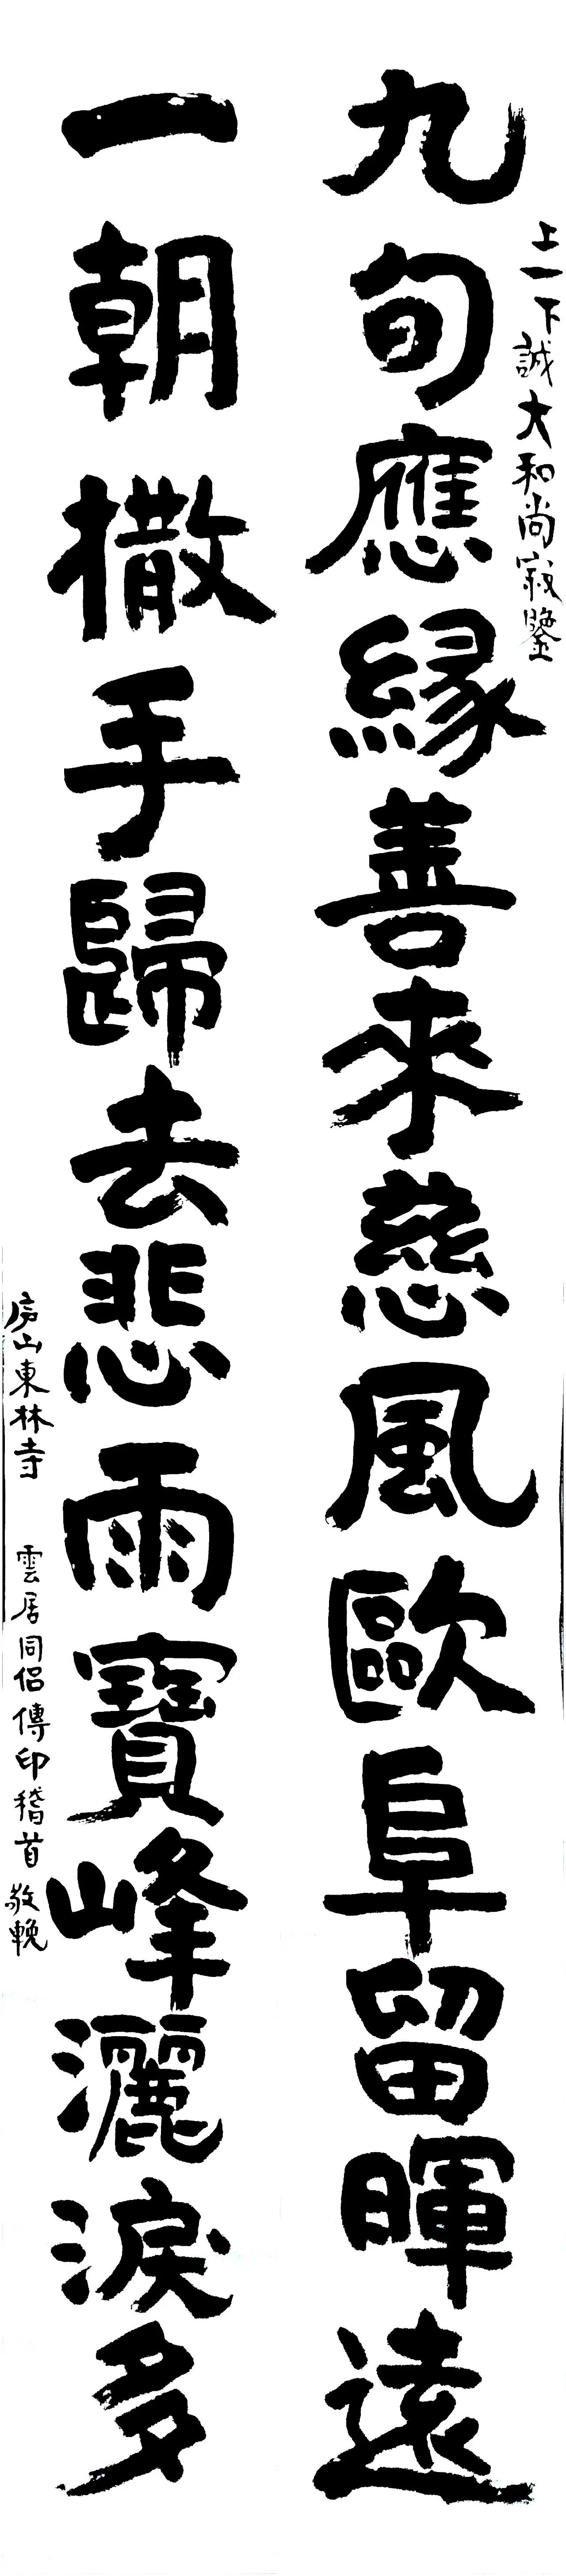 上一下誠大和尚寂鑒
九旬應緣善來慈風歐阜留暉遠
一朝撒手歸去悲雨寶峰灑淚多
庐山東林寺 雲居同侶傳印稽首敬輓